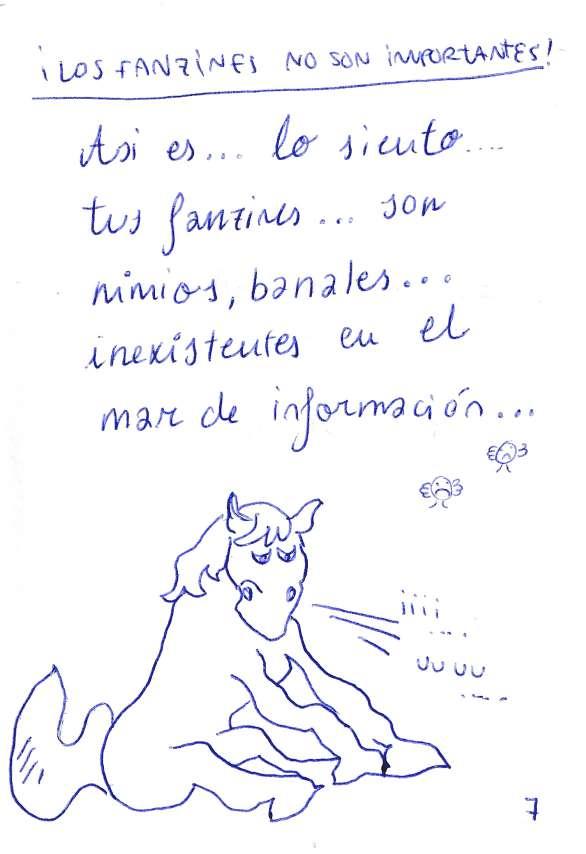 ¡LOS FANZINES NO SON IMPORTANTES!
Asi es... lo siento....
tus fanzines... son
nimios, banales...
inexistentes en el
mar de información...
iiii
....
UUUU
....
7